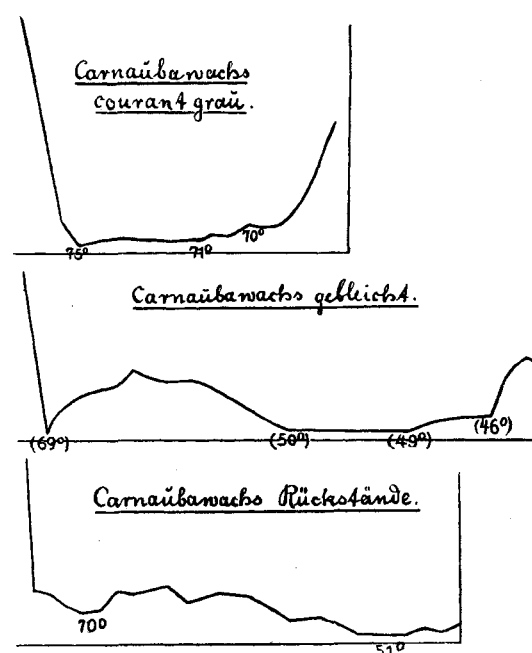 Carnaŭbawachs
courant graŭ.
75°
71°
70°
Carnaŭbawachs gebleicht.
(69°)
(50°)
(49°)
(46°)
Carnaŭbawachs Rückstände.
70°
51°